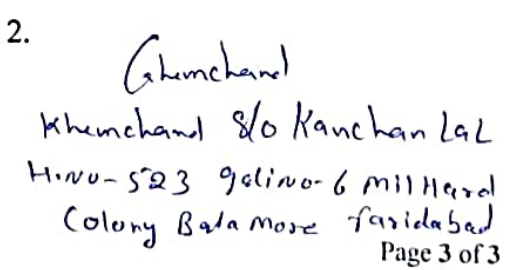 2.
Ghemchand
Khemchand S/o Kanchan LaL
H.No-523 galiNo-6 Mil Hard
Colony Bata More faridabad
Page 3 of 3